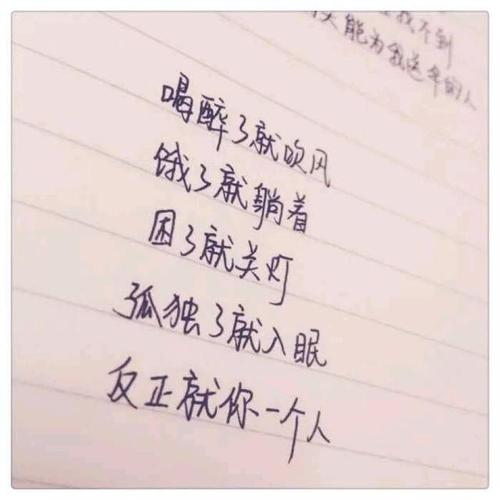 我不到
能为我送伞的人
喝醉了就吹风
饿了就躺着
困了就关灯
孤独了就入眠
反正就你一个人